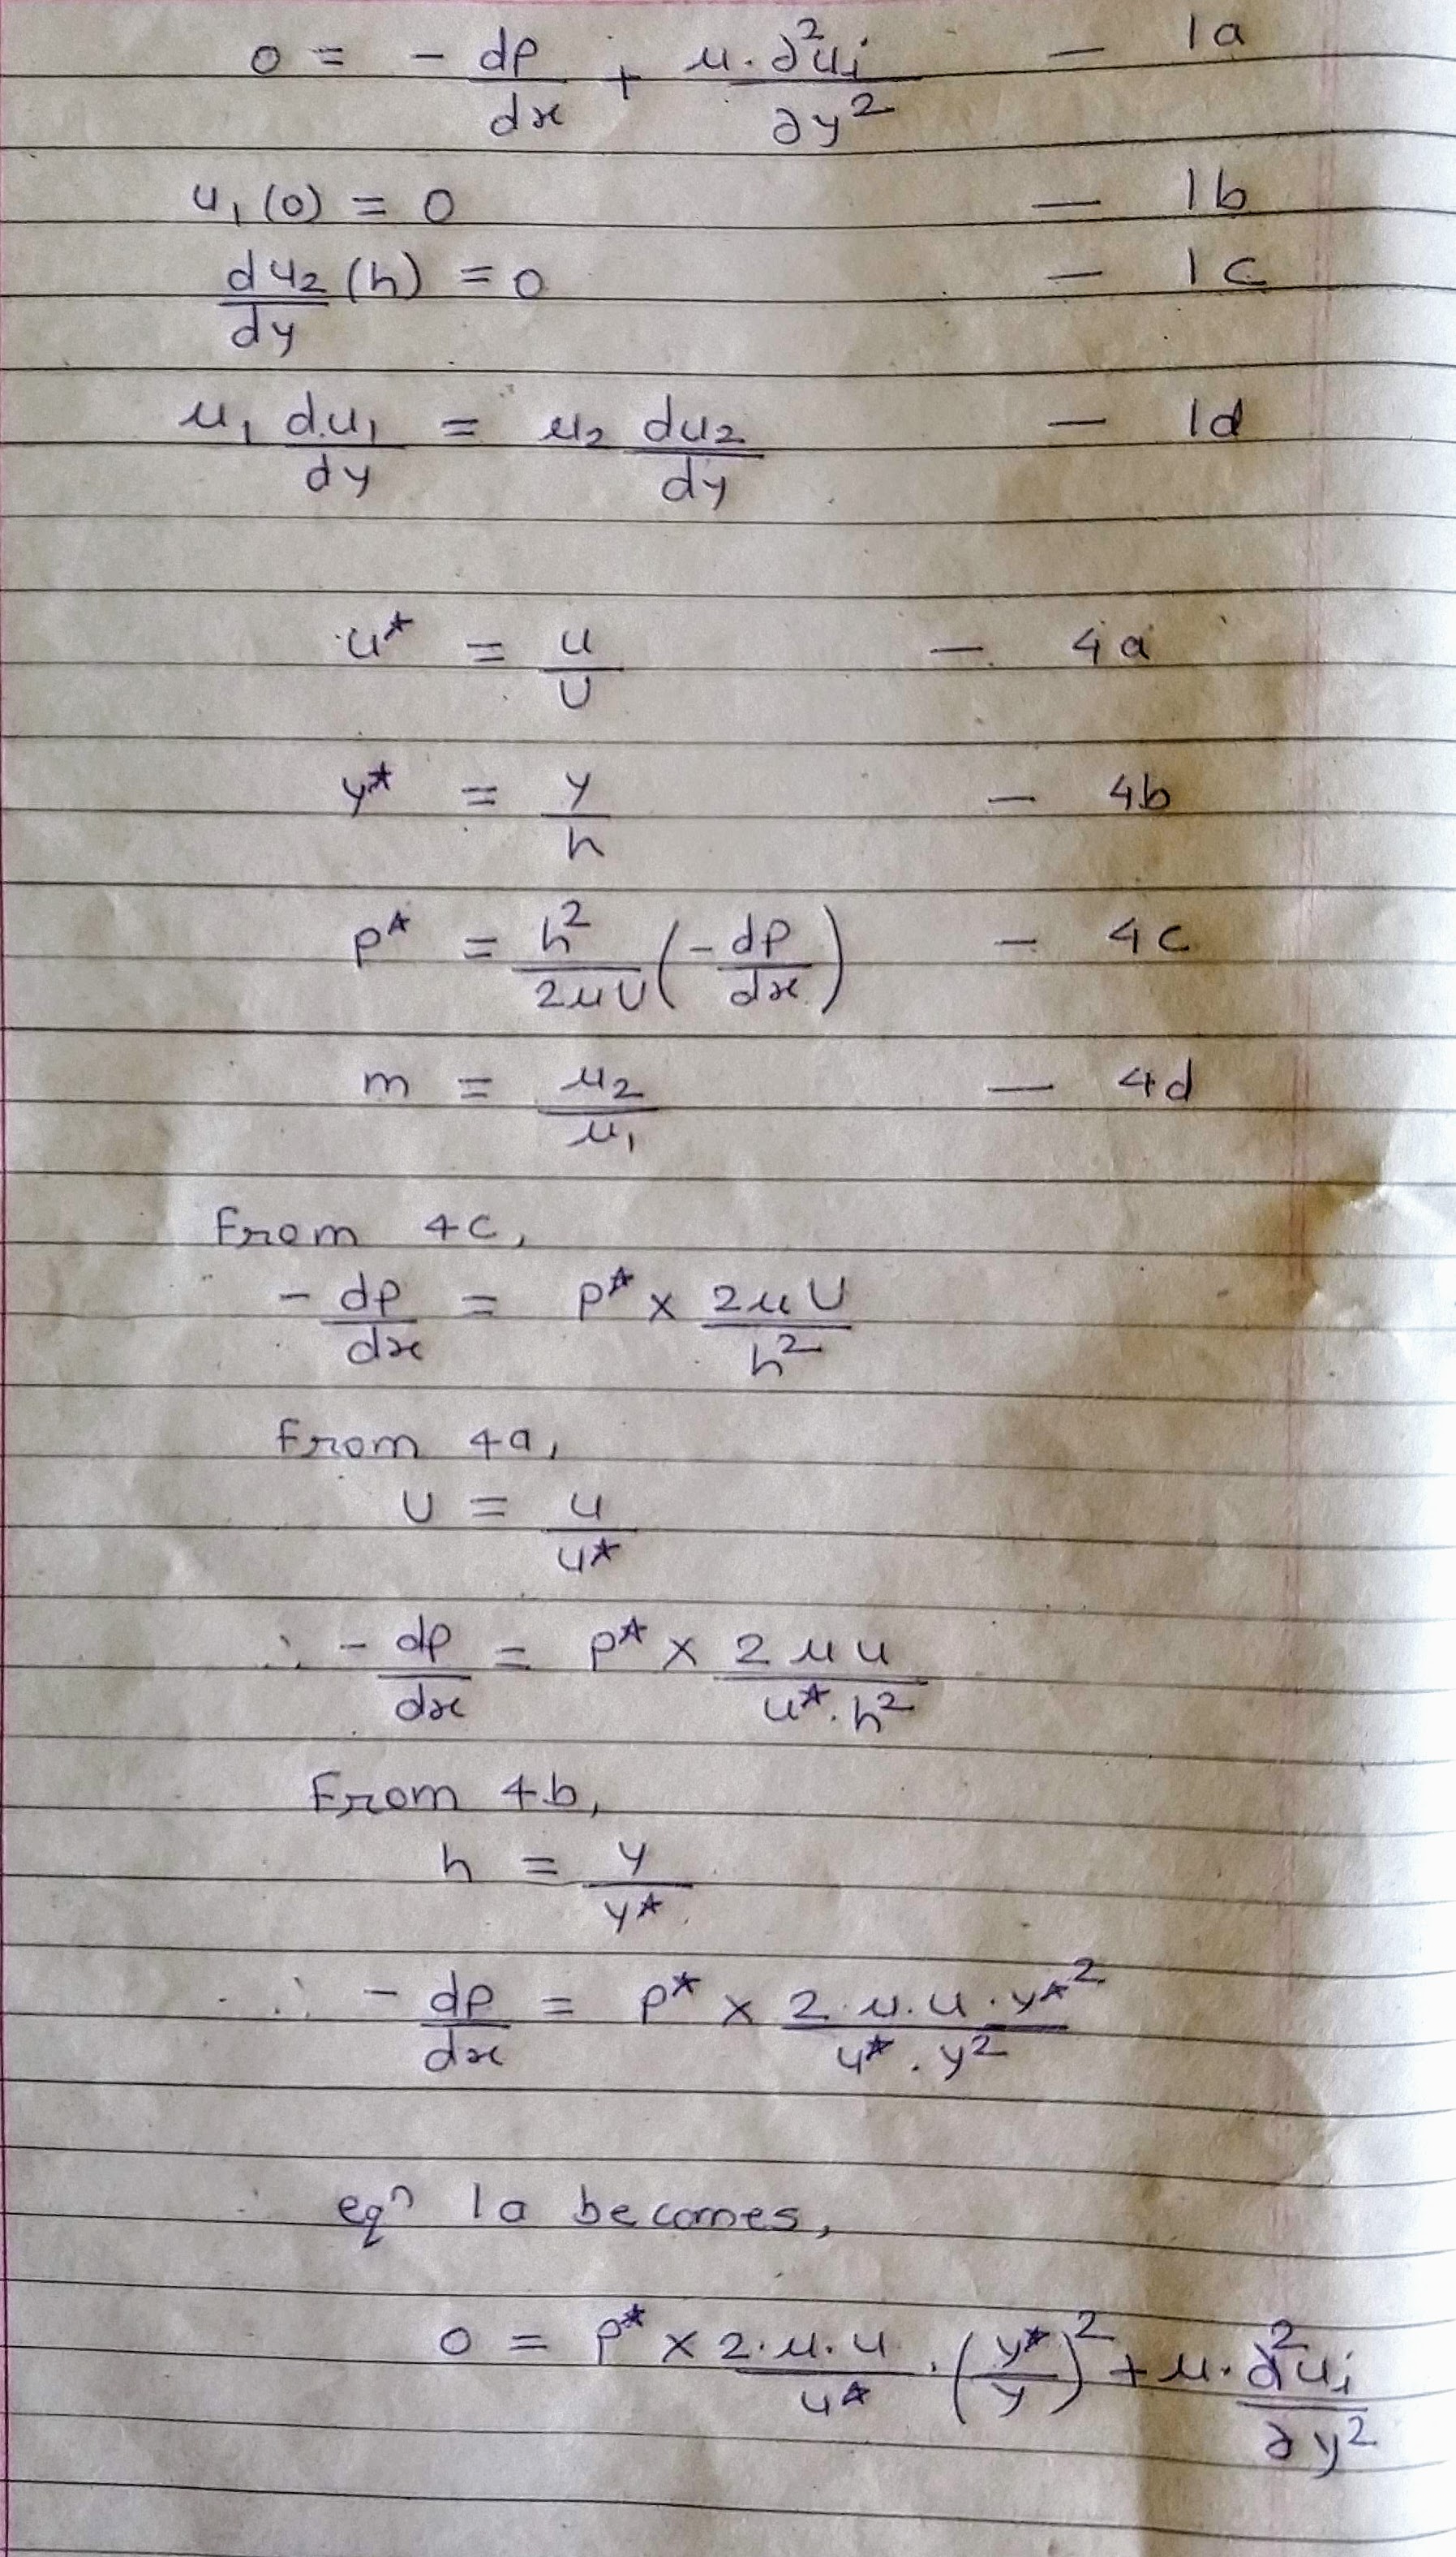 0 = - dp/dx + μ · ∂²uᵢ/∂y² — 1a
u₁(0) = 0 — 1b
du₂/dy (h) = 0 — 1c
μ₁ du₁/dy = μ₂ du₂/dy — 1d
u* = u/U — 4a
y* = y/h — 4b
P* = h²/2μU (- dp/dx) — 4c
m = μ₂/μ₁ — 4d
From 4c,
- dp/dx = P* × 2μU/h²
From 4a,
U = u/u*
∴ - dp/dx = P* × 2μu/u*·h²
From 4b,
h = y/y*
∴ - dp/dx = P* × 2·μ·u·y*²/u*·y²
eqⁿ 1a becomes,
0 = P* × 2·μ·u/u* · (y*/y)² + μ · ∂²uᵢ/∂y²